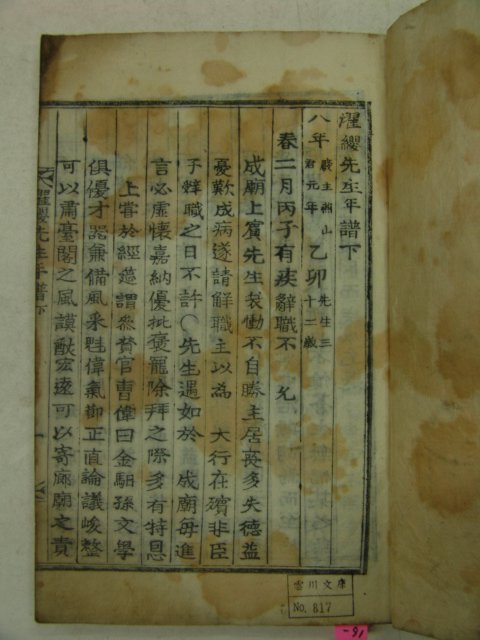 濯纓先生年譜下
八年 廢主燕山君元年 乙卯 先生三十二歲
春二月丙子有疾辭職不 允
成廟上賓先生哀慟不自勝主居喪多失德益
憂歎成病遂請解職主以為 大行在殯非臣
子辭職之日不許〇先生遇知於 成廟每進
言必虛懷嘉納優批褒寵除拜之際多有特恩
上嘗於經筵謂參贊官曹偉曰金馹孫文學
俱優才器兼備風采魁偉氣御正直論議峻整
可以肅臺閣之風謨猷宏遠可以寄廊廟之責
濯纓先生年譜下
一
雲川文庫
No. 817
-91